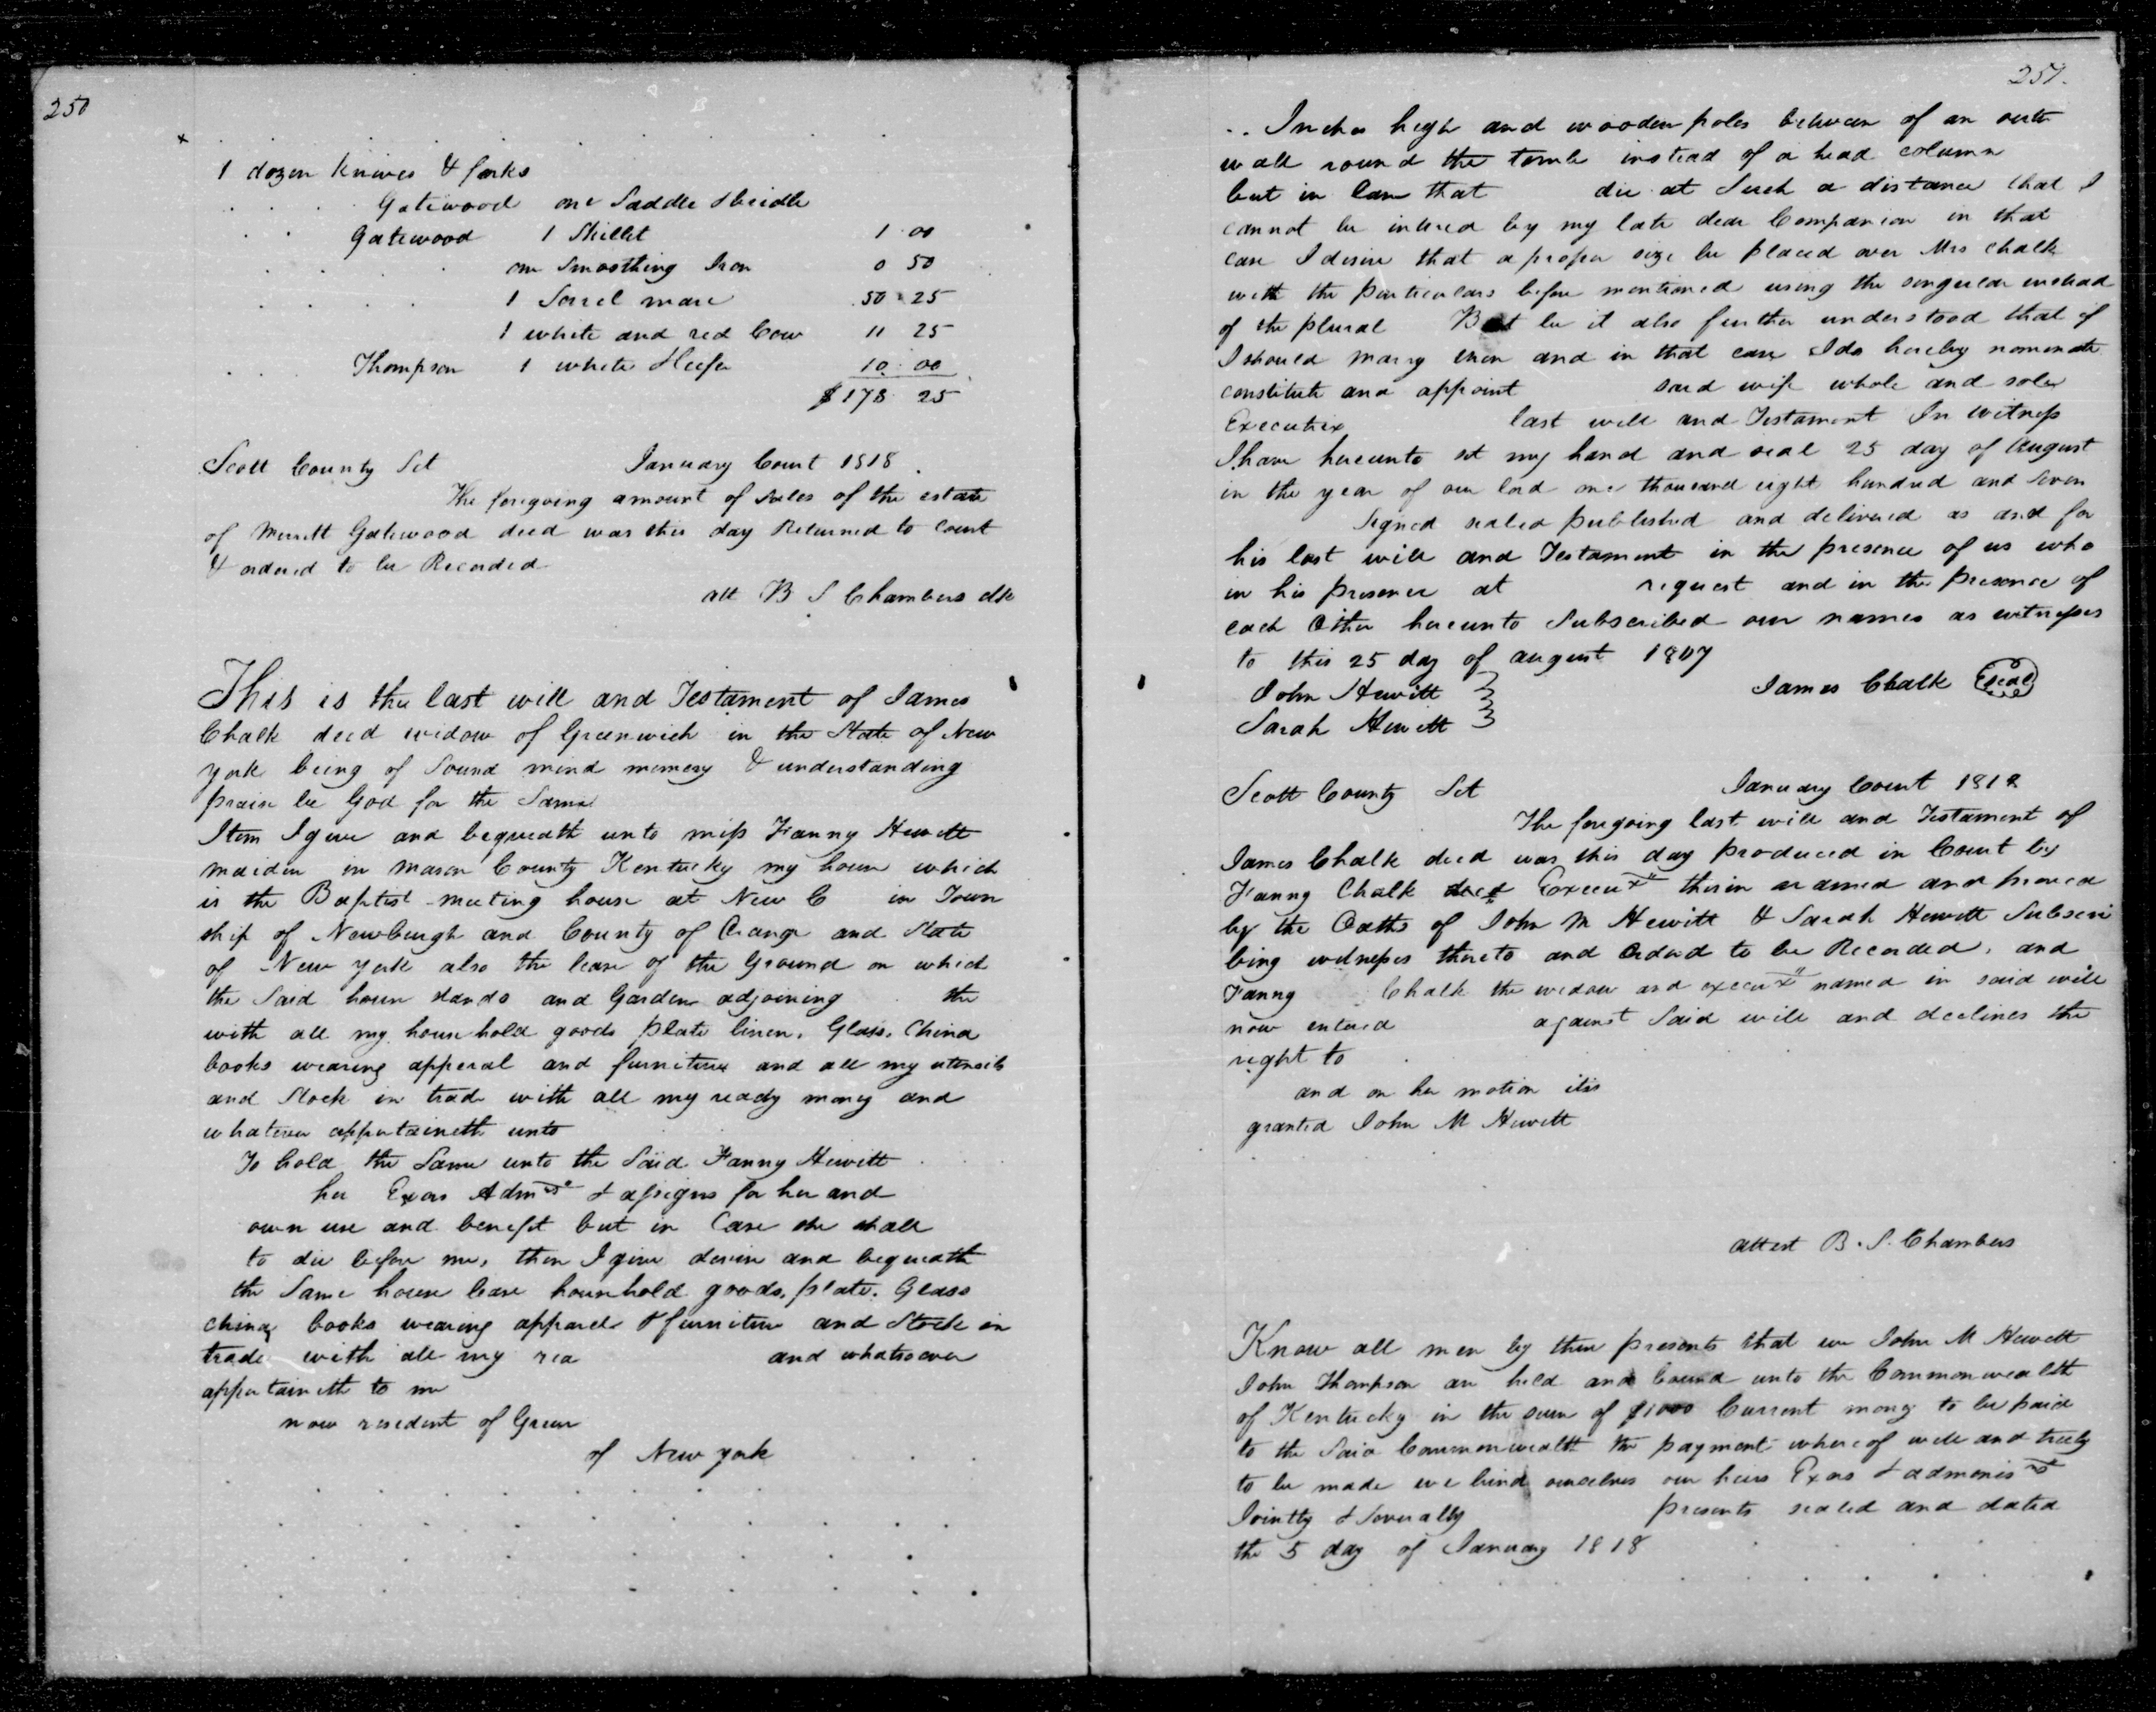 250
1 dozen Knives & forks
Gatewood one Saddle & bridle
Gatewood 1 Skillet 1 00
one Smoothing Iron 0 50
1 Sorrel mare 50 25
1 white and red Cow 11 25
Thompson 1 white Heifer 10 00
$178 25
Scott County Sct January Court 1818
The foregoing amount of Sales of the estate
of Merritt Gatewood decd was this day Returned to Court
& ordered to be Recorded
att B S Chambers clk
This is the last will and Testament of James
Chalk decd widow of Greenwich in the State of New
york being of Sound mind memory & understanding
praise be God for the Same
Item I give and bequeath unto miss Fanny Hewitt
maiden in Mason County Kentucky my house which
is the Baptist meeting house at New C in Town
ship of Newburgh and County of Orange and State
of New york also the lease of the Ground on which
the Said house stands and Garden adjoining the
with all my household goods plate linen, Glass, China
books wearing apperal and furniture and all my utensils
and Stock in trade with all my ready money and
whatever appertaineth unto
To hold the Same unto the Said Fanny Hewitt
her Exors Admrs & assigns for her and
own use and benefit but in Case she shall
to die before me, then I give devise and bequeath
the Same house lease household goods, plate, Glass
china books wearing apparel & furniture and Stock in
trade with all my rea and whatsoever
appertaineth to me
now resident of Green
of New york
251.
Inches high and wooden poles between of an outer
wall round the tomb instead of a head column
but in Case that die at Such a distance that I
cannot be intered by my late dear Companion in that
case I desire that a proper size be placed over Mrs Chalk
with the particulars before mentioned using the singular instead
of the plural But be it also further understood that if
I should marry then and in that case I do hereby nominate
constitute and appoint said wife whole and sole
Executrix last will and Testament In witness
I have hereunto set my hand and seal 25 day of August
in the year of our lord one thousand eight hundred and Seven
Signed sealed published and delivered as and for
his last will and Testament in the presence of us who
in his presence at request and in the presence of
each Other hereunto Subscribed our names as witnesses
to this 25 day of august 1807
John Hewitt
James Chalk Seal
Sarah Hewitt
Scott County Sct January Court 1818
The foregoing last will and Testament of
James Chalk decd was this day produced in Court by
Fanny Chalk Execux therin named and proved
by the Oaths of John M Hewitt & Sarah Hewitt Subscri
bing witnesses thereto and Ordered to be Recorded, and
Fanny Chalk the widow and execux named in said will
now entered against Said will and declines the
right to
and on her motion itis
granted John M Hewitt
attest B. S. Chambers
Know all men by these presents that we John M Hewitt
John Thompson are held and bound unto the Commonwealth
of Kentucky in the sum of $1000 Current money to be paid
to the Said Commonwealth the payment whereof well and truly
to be made we bind ourselves our heirs Exors & adminisrs
Jointly & Severally presents sealed and dated
the 5 day of January 1818